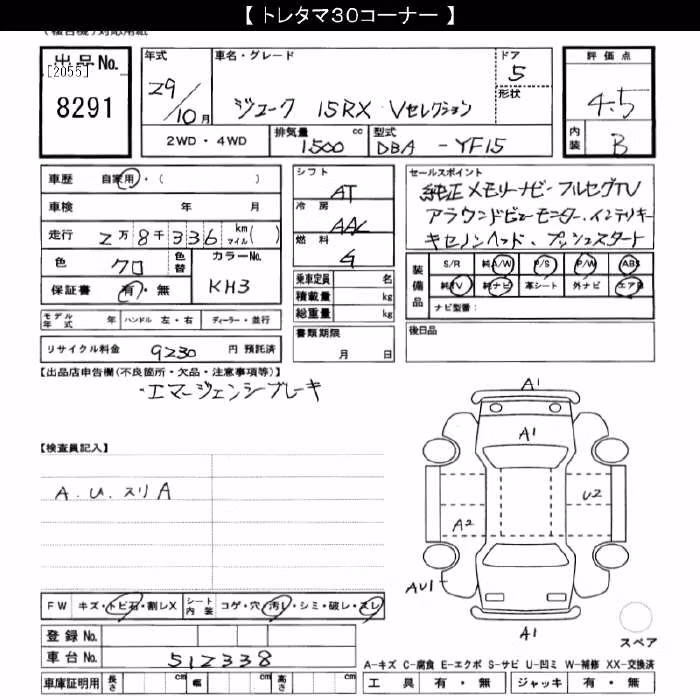 【 トレタマ30コーナー 】
(複合機)対応用紙
出品No. [2055] 8291
年式 29/10月
車名・グレード ジューク 15RX Vセレクション
ドア 5
形状
評価点 4.5
内装 B
2WD・4WD 排気量 1500 cc 型式 DBA - YF15
車歴 自家用・( )
車検 年 月
走行 2万8千336 km マイル( )
色 クロ 色替 カラーNo. KH3
保証書 有・無
シフト AT
冷房 AAC
燃料 G
乗車定員 名
積載量 kg
総重量 kg
セールスポイント
純正メモリーナビ-フルセグTV
アラウンドビューモニター、インテリキー
キセノンヘッド、プッシュスタート
装備品 S/R 純A/W P/S P/W ABS
純TV 純ナビ 革シート 外ナビ エアB
ナビ型番:
モデル年式 年 ハンドル 左・右 ディーラー・並行
書類期限 月 日
後日品
リサイクル料金 9230 円 預託済
【出品店申告欄(不良箇所・欠品・注意事項等)】
・エマージェンシーブレーキ
【検査員記入】
A.U.スリA
A1
A1
U2
A2
AU1
A1
スペア
FW キズ・トビ石・割レX シート内装 コゲ・穴・汚レ・シミ・破レ・スレ
登録No.
車台No. 512338
車庫証明用 長さ cm 幅 cm 高さ cm
A-キズ C-腐食 E-エクボ S-サビ U-凹ミ W-補修 XX-交換済
工具 有・無 ジャッキ 有・無